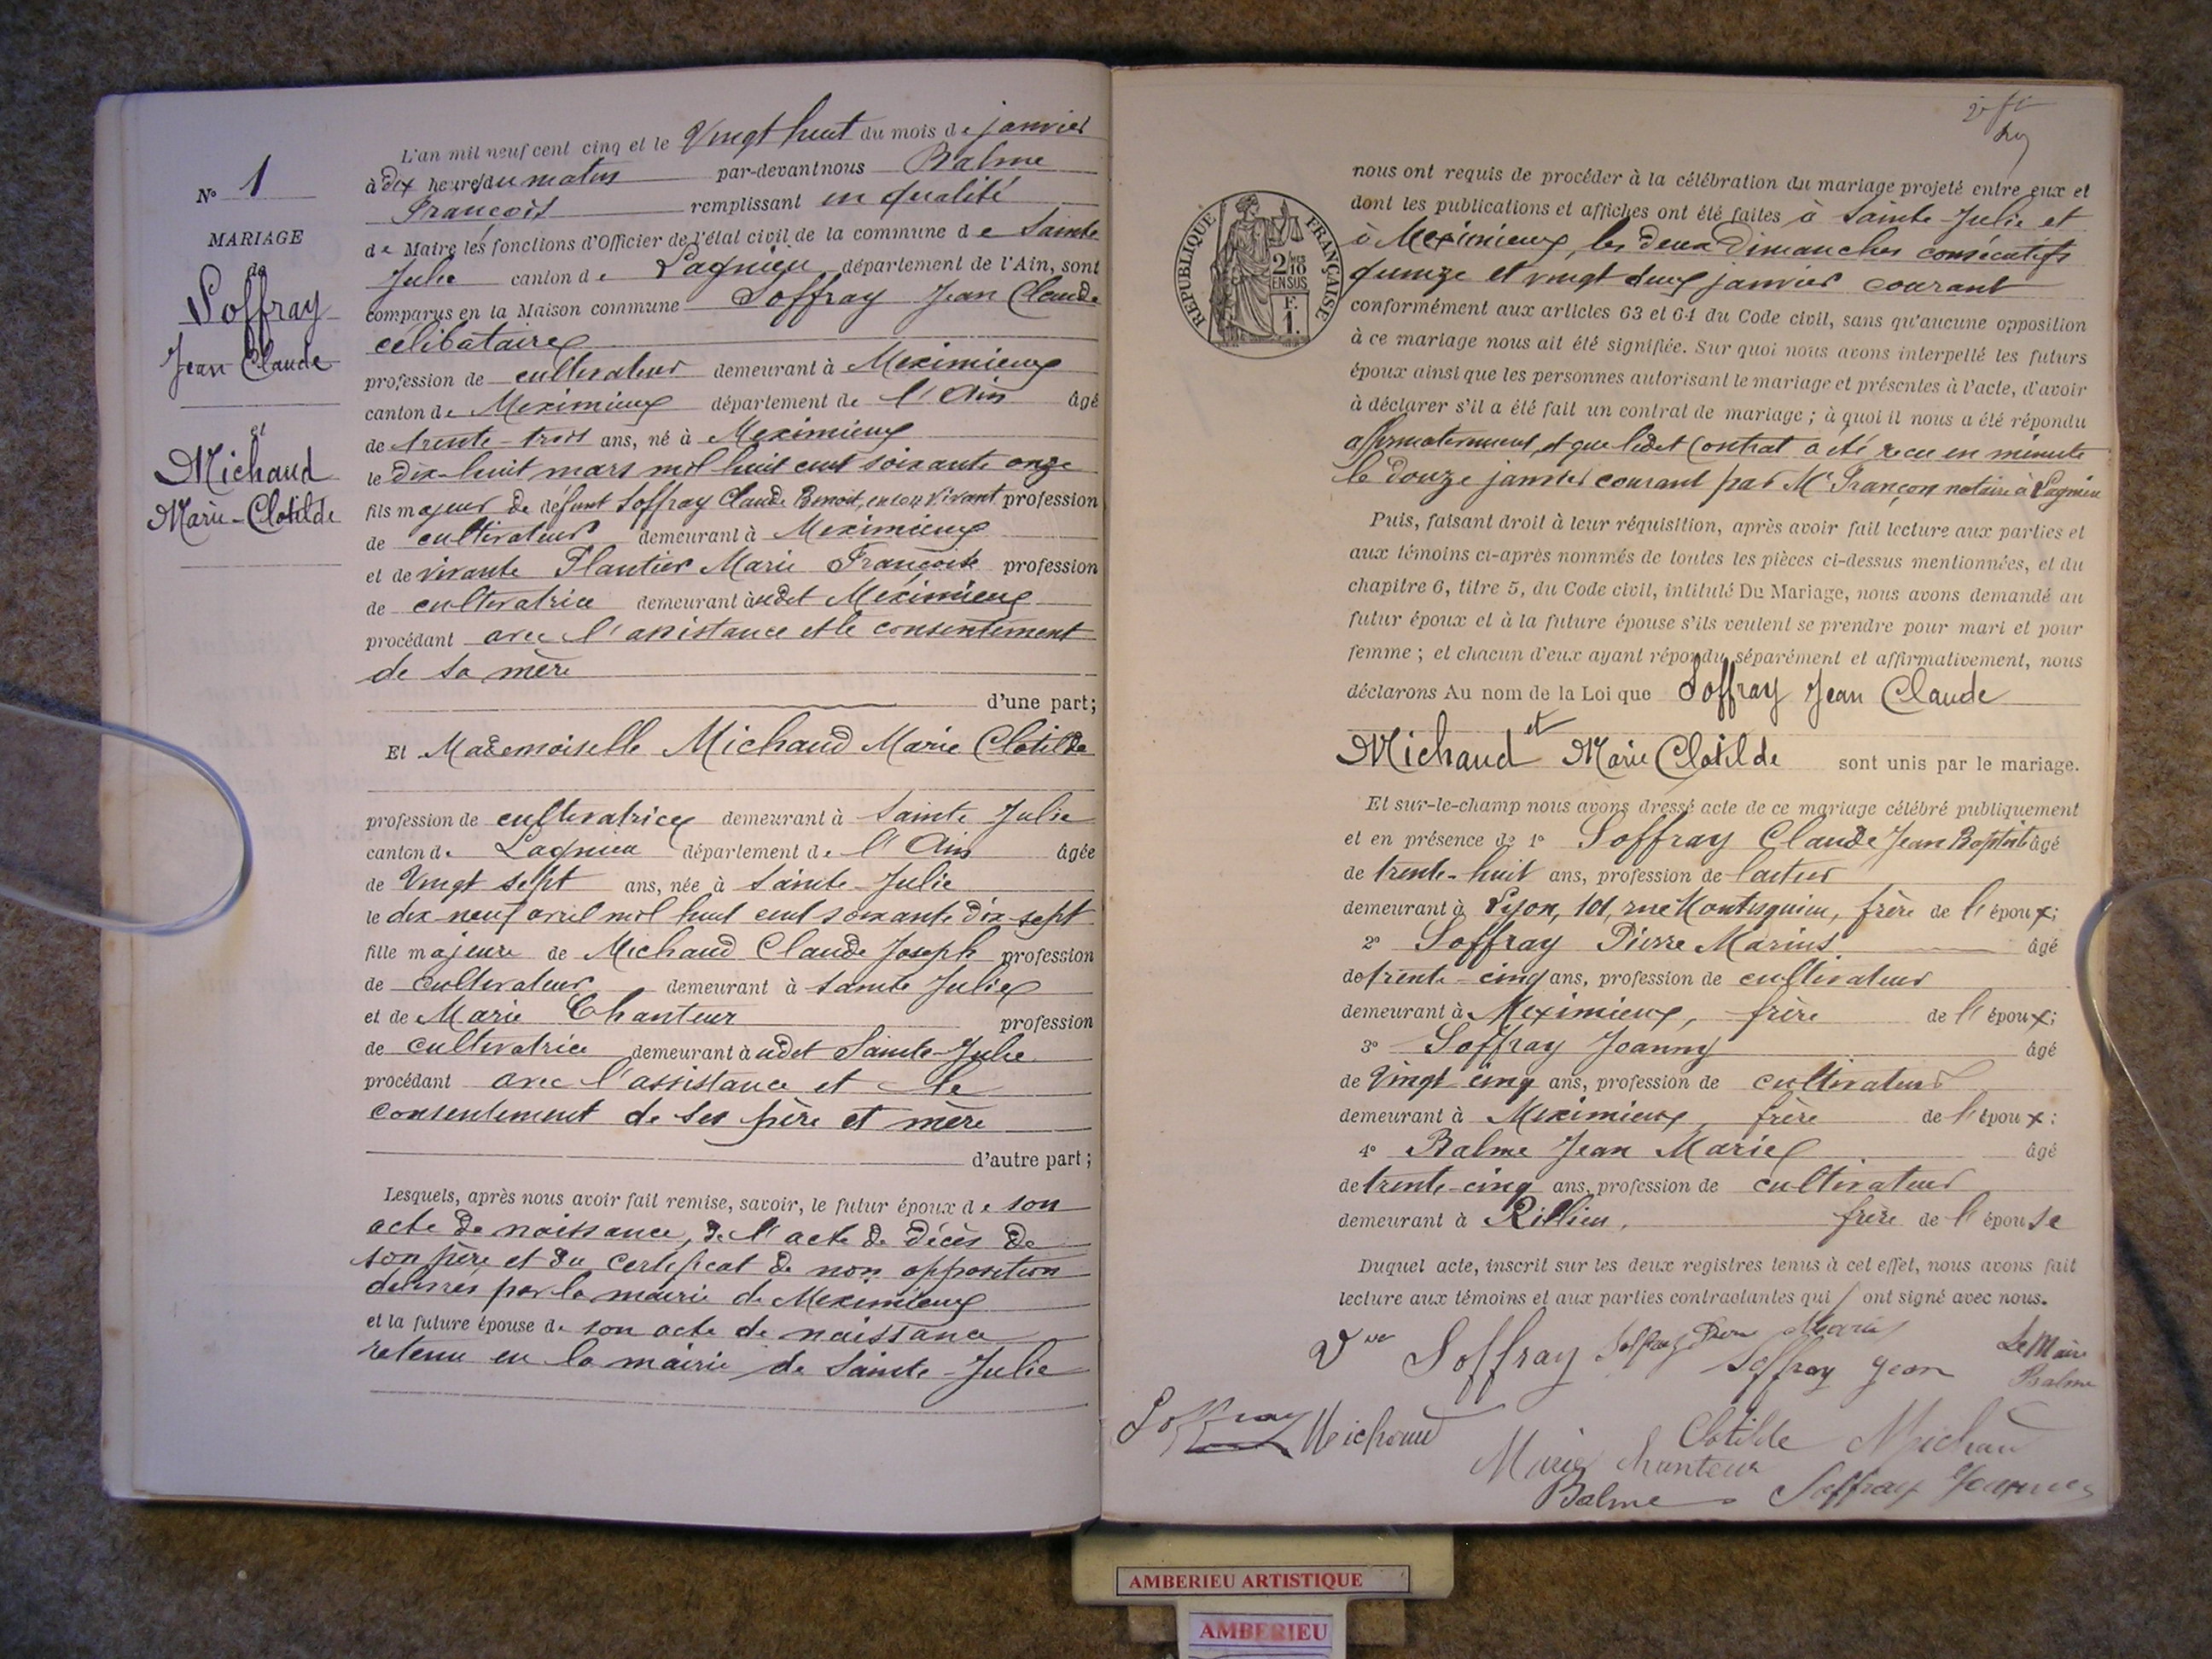 N° 1
MARIAGE
de
Soffray
Jean Claude
et
Michaud
Marie-Clotilde
L'an mil neuf cent cinq et le Vingt huit du mois de janvier
à dix heures du matin par-devant nous Balme
François remplissant en qualité
de Maire les fonctions d'Officier de l'état civil de la commune de Sainte
Julie canton de Lagnieu département de l'Ain, sont
comparus en la Maison commune Soffray Jean Claude
célibataire
profession de cultivateur demeurant à Meximieux
canton de Meximieux département de l'Ain âgé
de trente-trois ans, né à Meximieux
le dix-huit mars mil huit cent soixante onze
fils majeur de défunt Soffray Claude Benoit, en son vivant profession
de cultivateur demeurant à Meximieux
et de vivante Plantier Marie Françoise profession
de cultivatrice demeurant audit Meximieux
procédant avec l'assistance et le consentement
de sa mère
d'une part;
Et Mademoiselle Michaud Marie Clotilde
profession de cultivatrice demeurant à Sainte Julie
canton de Lagnieu département de l'Ain âgée
de Vingt sept ans, née à Sainte-Julie
le dix-neuf avril mil huit cent soixante dix-sept
fille majeure de Michaud Claude Joseph profession
de cultivateur demeurant à Sainte Julie
et de Marie Chanteur profession
de cultivatrice demeurant audit Sainte-Julie
procédant avec l'assistance et le
consentement de ses père et mère
d'autre part;
Lesquels, après nous avoir fait remise, savoir, le futur époux de son
acte de naissance, de l'acte de décès de
son père et du certificat de non opposition
délivrés par la mairie de Meximieux
et la future épouse de son acte de naissance
retenu en la mairie de Sainte-Julie
RÉPUBLIQUE FRANÇAISE
2/10 MES
EN SUS
F.
1.
nous ont requis de procéder à la célébration du mariage projeté entre eux et
dont les publications et affiches ont été faites à Sainte-Julie et
à Meximieux, les deux Dimanches consécutifs
quinze et vingt deux janvier courant
conformément aux articles 63 et 64 du Code civil, sans qu'aucune opposition
à ce mariage nous ait été signifiée. Sur quoi nous avons interpellé les futurs
époux ainsi que les personnes autorisant le mariage et présentes à l'acte, d'avoir
à déclarer s'il a été fait un contrat de mariage; à quoi il nous a été répondu
affirmativement, et que ledit Contrat a été reçu en minute
le douze janvier courant par Me Françon notaire à Lagnieu
Puis, faisant droit à leur réquisition, après avoir fait lecture aux parties et
aux témoins ci-après nommés de toutes les pièces ci-dessus mentionnées, et du
chapitre 6, titre 5, du Code civil, intitulé Du Mariage, nous avons demandé au
futur époux et à la future épouse s'ils veulent se prendre pour mari et pour
femme; et chacun d'eux ayant répondu séparément et affirmativement, nous
déclarons Au nom de la Loi que Soffray Jean Claude
et
Michaud Marie Clotilde sont unis par le mariage.
Et sur-le-champ nous avons dressé acte de ce mariage célébré publiquement
et en présence de 1° Soffray Claude Jean Baptiste âgé
de trente-huit ans, profession de facteur
demeurant à Lyon, 101, rue Montesquieu, frère de l'époux;
2° Soffray Pierre Marius âgé
de trente-cinq ans, profession de cultivateur
demeurant à Meximieux, frère de l'époux;
3° Soffray Joanny âgé
de Vingt-cinq ans, profession de cultivateur
demeurant à Meximieux, frère de l'époux;
4° Balme Jean Marie âgé
de trente-cinq ans, profession de cultivateur
demeurant à Rillieu, frère de l'épouse
Duquel acte, inscrit sur les deux registres tenus à cet effet, nous avons fait
lecture aux témoins et aux parties contractantes qui ont signé avec nous.
Vve Soffray Soffray Pierre Marius Soffray Jean Le Maire
Balme
Soffray Michaud Clotilde Michaud
Marie Chanteur
Balme Soffray Joanny
AMBERIEU ARTISTIQUE
AMBERIEU